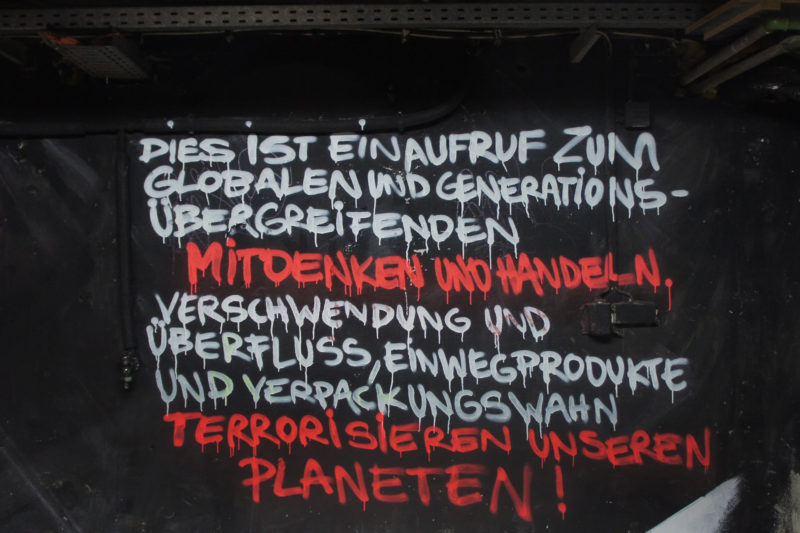 DIES IST EIN AUFRUF ZUM
GLOBALEN UND GENERATIONS-
ÜBERGREIFENDEN
MITDENKEN UND HANDELN.
VERSCHWENDUNG UND
ÜBERFLUSS, EINWEGPRODUKTE
UND VERPACKUNGSWAHN
TERRORISIEREN UNSEREN
PLANETEN!